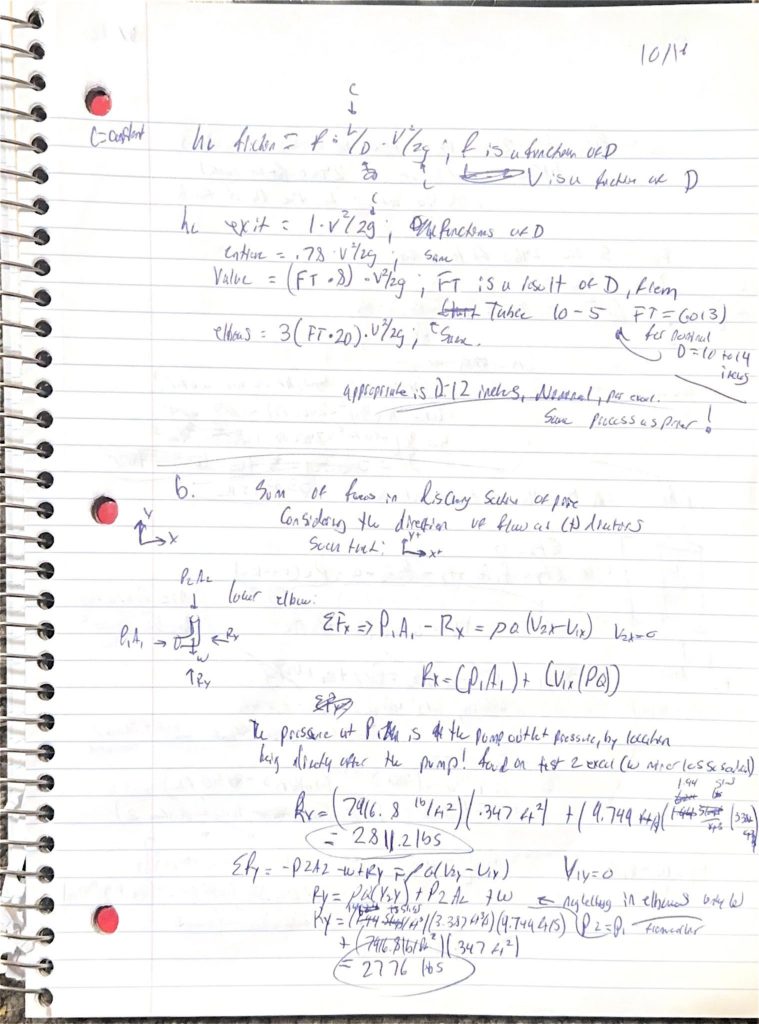 10/18
C
↓
C=constant
hL friction = f · L/D · V²/2g ; f is a function of D
V is a function of D
C
hL exit = 1·V²/2g ; functions of D
entrance = .78 · V²/2g ; same
Valve = (FT · 8) · V²/2g ; FT is a result of D, from
Table 10-5 FT = (.013)
elbows = 3(FT·20)·V²/2g ; same.
for nominal
D=10 to 14
inches
appropriate is D=12 inches, Nominal, per excel.
Same process as prior!
6. Sum of forces in Discharge Section of pipe
Considering the direction of flow as (+) directions
Such that: Y+ X+
Y
X
P2A2
lower elbow:
P1A1 → ← Rx
W
↑Ry
ΣFx => P1A1 - Rx = ρQ(V2x - V1x) V2x=0
Rx = (P1A1) + (V1x(ρQ))
The pressure at P1 is the pump outlet pressure, by location
being directly after the pump! found on test 2 excel (w minor losses
Rx = (7916.8 lb/ft²)(.347 ft²) + (9.749 ft/s)(1.94
= 2811.2 lbs
ΣFy = -P2A2 - w + Ry = ρQ(V2y - V1y) V1y=0
Ry = ρQ(V2y) + P2A2 + w ← neglecting in elbows only w
(3.387 ft³/s)(9.749 ft/s) P2=P1
+ (7916.8 lb/ft²)(.347 ft²)
= 2776 lbs